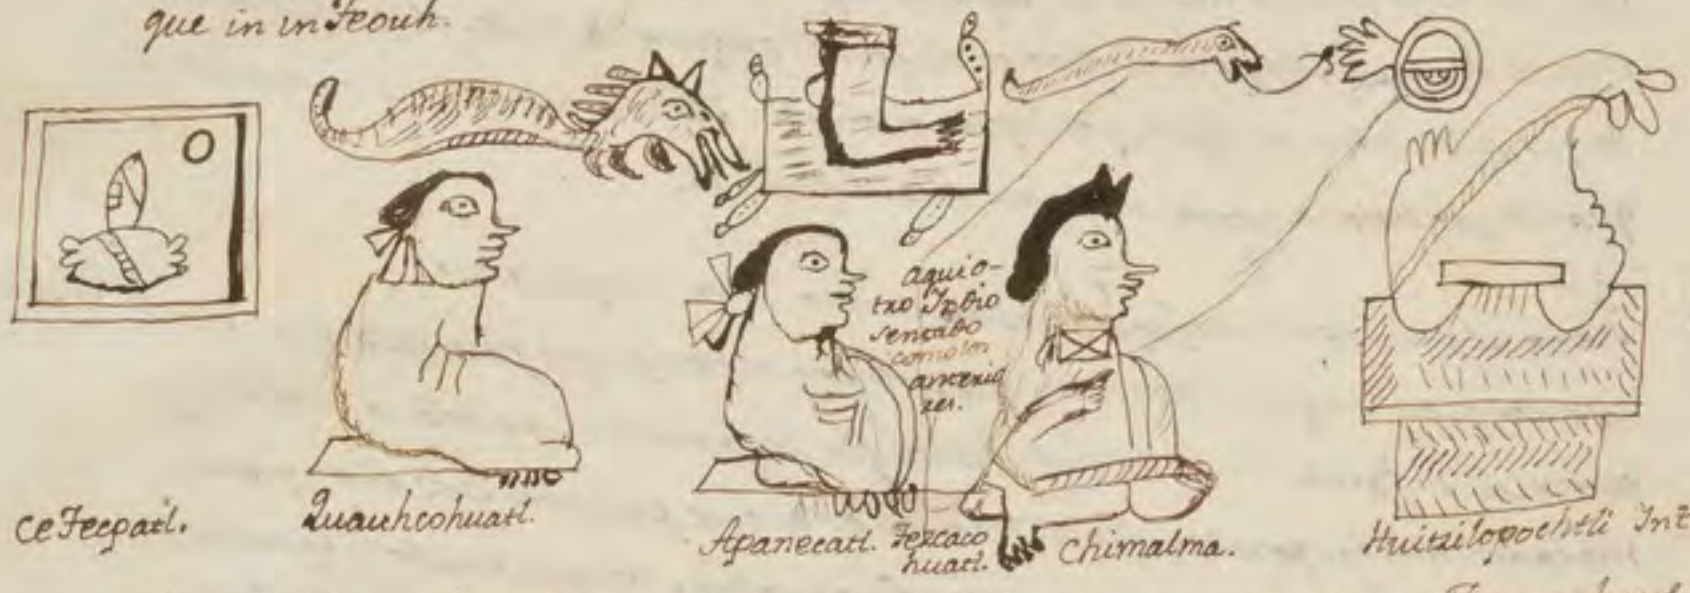 que in inTeouh.
aqui o-
tro Indio
sentado
como los
anterio
res.
ce Tecpatl.
Quauhcohuatl.
Apanecatl.
Tezcaco
huatl.
Chimalma.
Huitzilopochtli Int